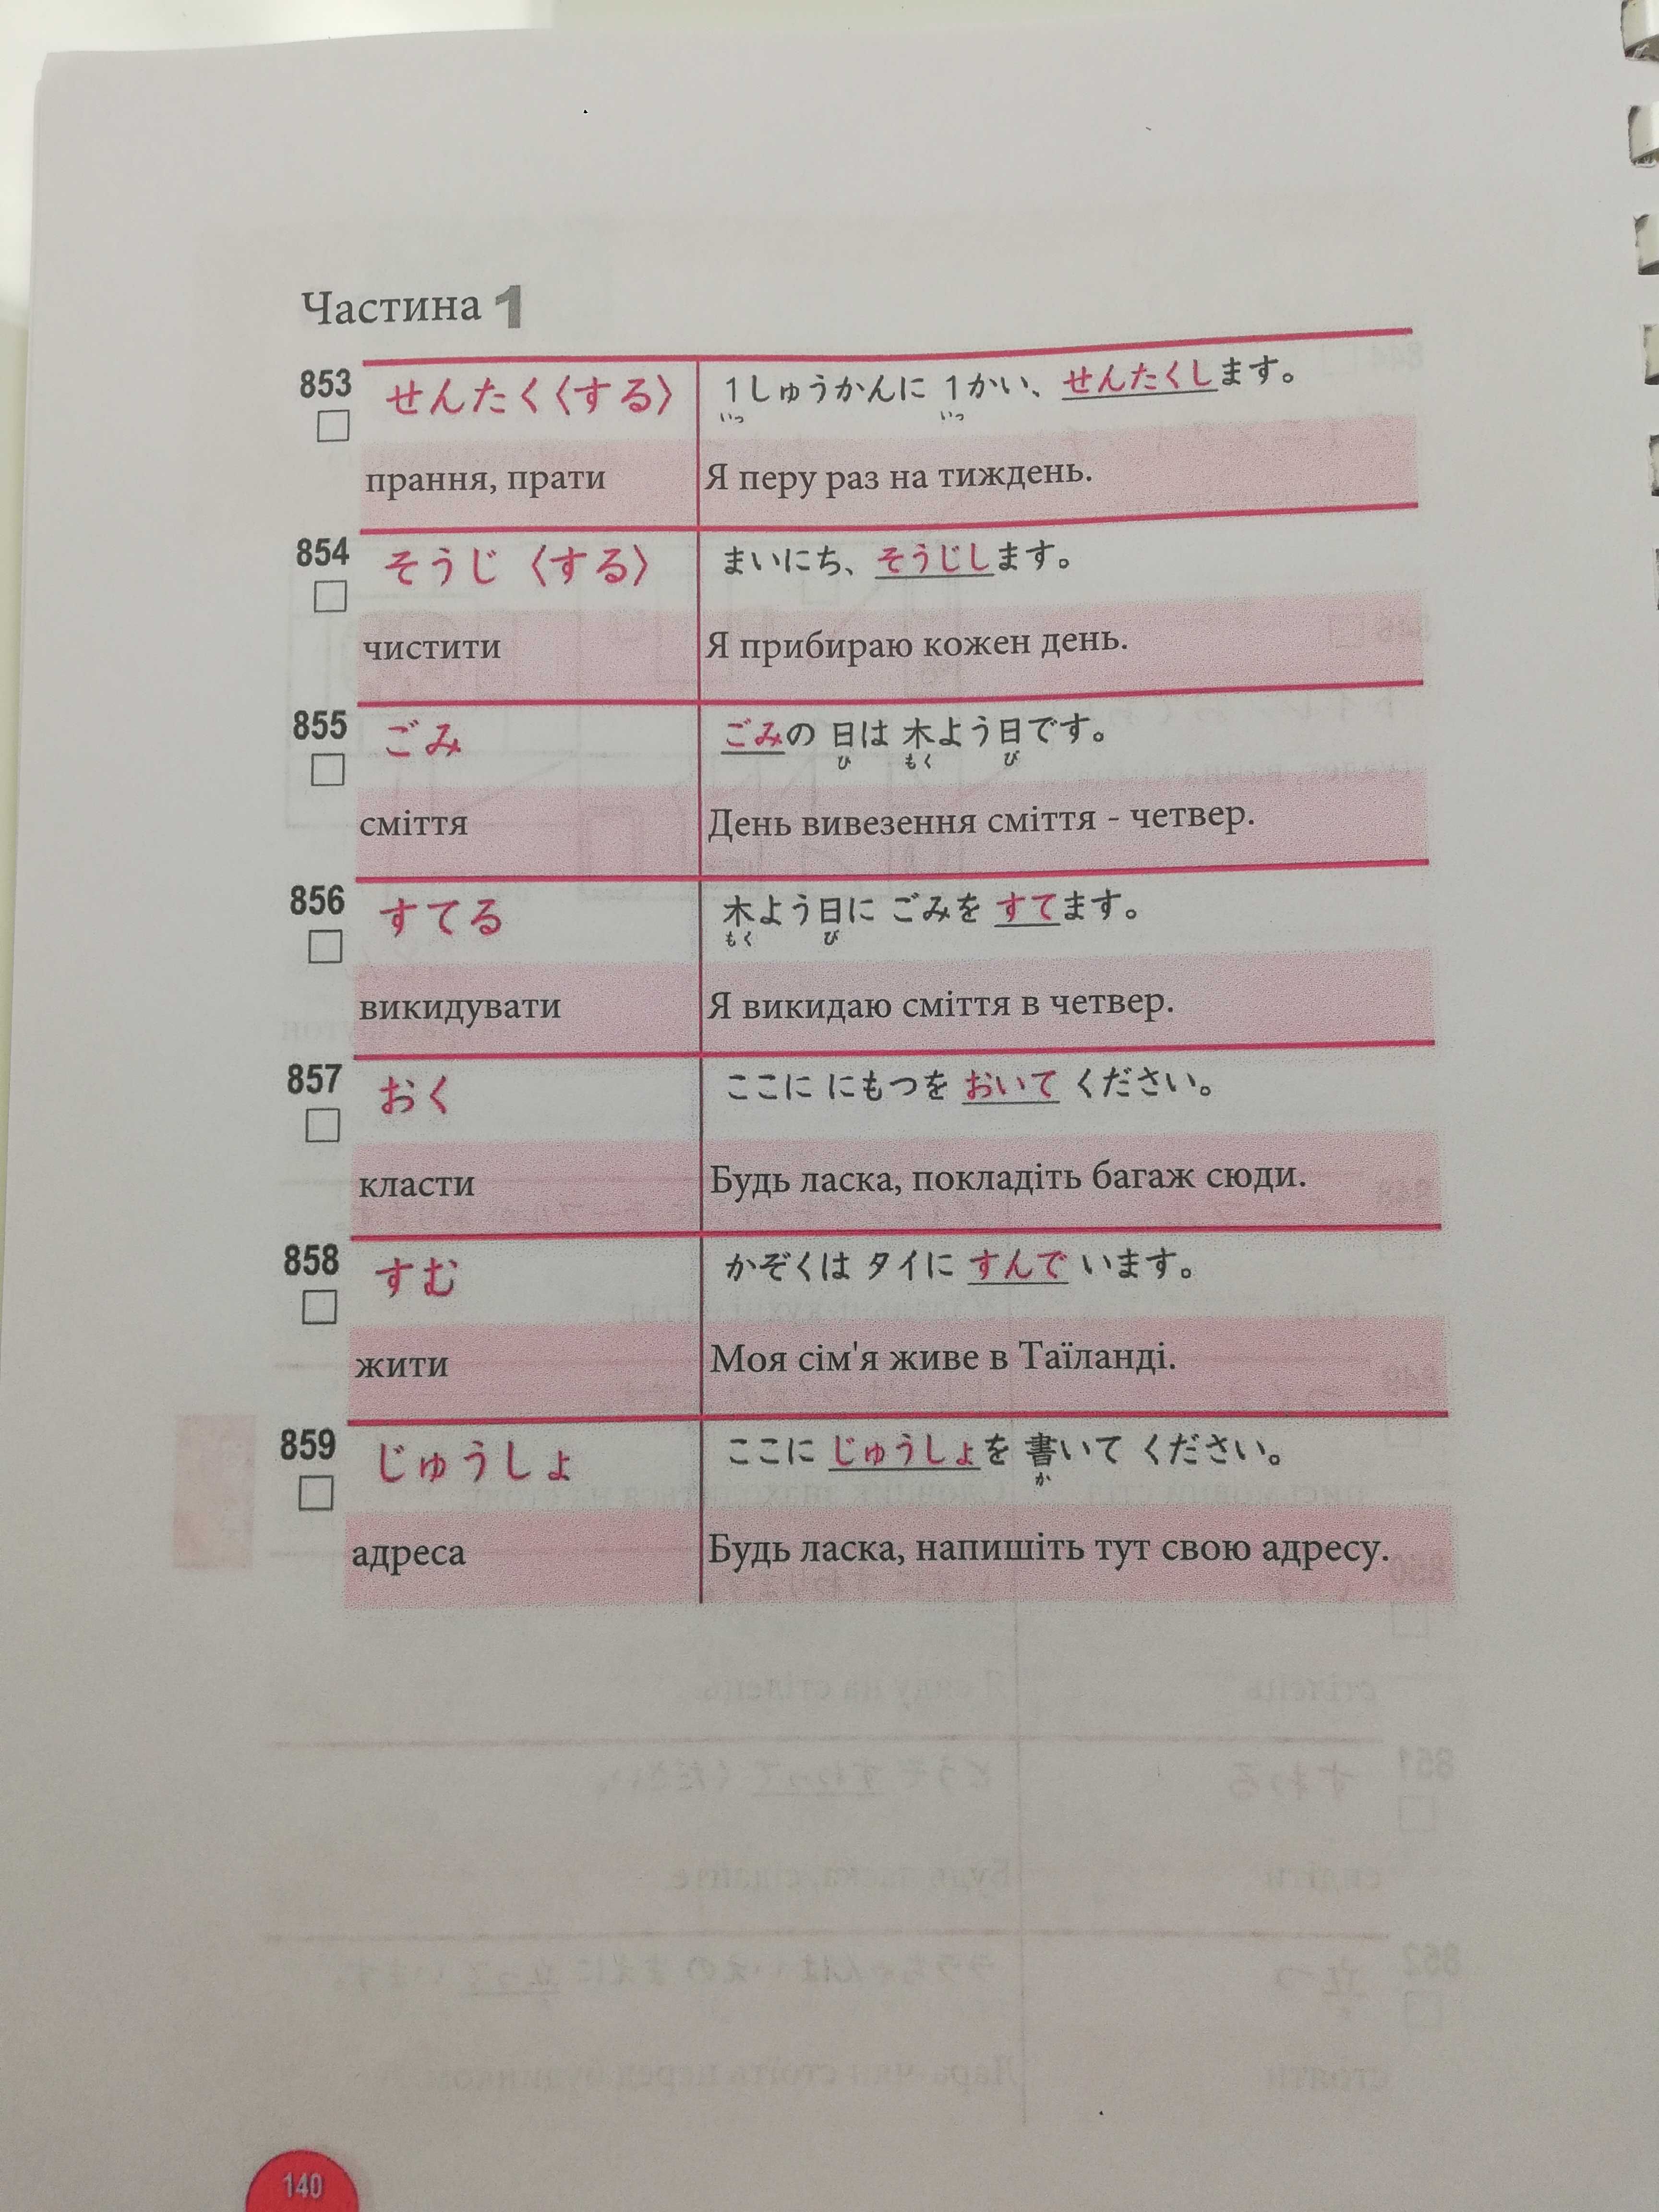 Частина 1
853 せんたく〈する〉 1しゅうかんに 1かい、せんたくします。
いっ いっ
прання, прати Я перу раз на тиждень.
854 そうじ〈する〉 まいにち、そうじします。
чистити Я прибираю кожен день.
855 ごみ ごみの 日は 木よう日です。
ひ もく び
сміття День вивезення сміття - четвер.
856 すてる 木よう日に ごみを すてます。
もく び
викидувати Я викидаю сміття в четвер.
857 おく ここに にもつを おいて ください。
класти Будь ласка, покладіть багаж сюди.
858 すむ かぞくは タイに すんで います。
жити Моя сім'я живе в Таїланді.
859 じゅうしょ ここに じゅうしょを 書いて ください。
か
адреса Будь ласка, напишіть тут свою адресу.
140